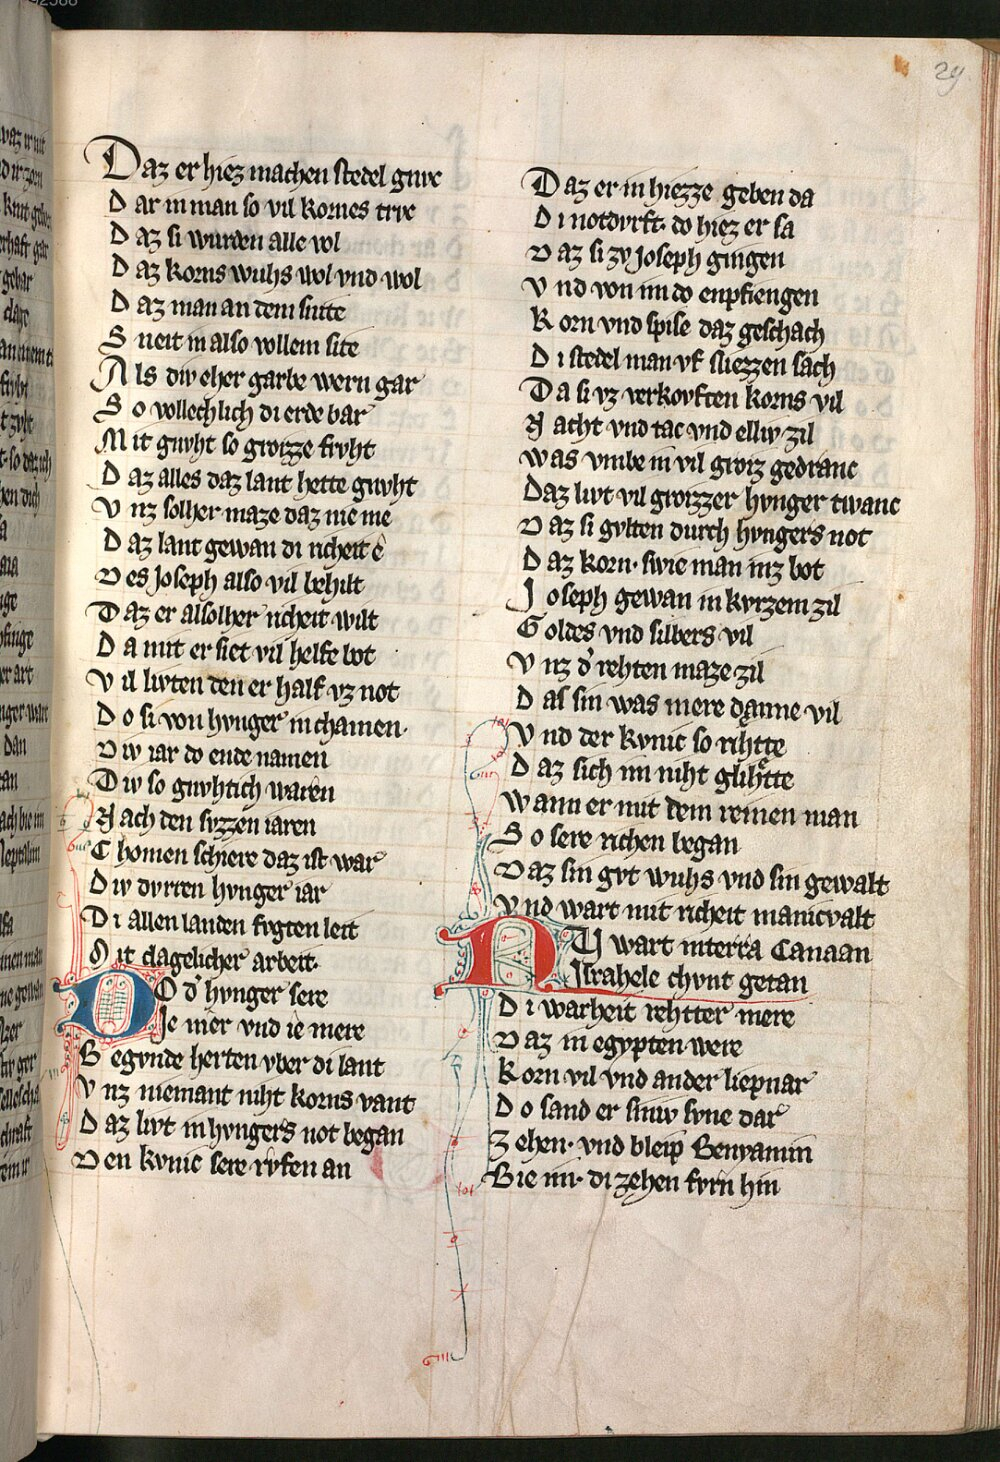 29
Daz er hiez machen stedel gnvc
Dar in man so vil kornes trvc
Daz si wurden alle vol
Daz korns wuhs wol vnd wol
Daz man an dem snite
Sneit in also vollem site
Als div eher garbe wern gar
So vollechlich di erde bar
Mit gnvht so grozze frvht
Daz alles daz lant hette gnvht
Vnz solher maze daz nie me
Daz lant gewan di richeit e
Des Joseph also vil behilt
Daz er alsolher richeit wilt
Da mit er siet vil helfe bot
Vil livten den er half vz not
Do si von hvnger in chamen.
Div iar do ende namen
Div so gnvhtich waren
Nach den svzzen iaren
Chomen schiere daz ist war
Div dvrren hvnger iar
Di allen landen fvgten leit
Mit clagelicher arbeit.
Do d' hvnger sere
Ie mer vnd ie mere
Begvnde herten vber di lant
Vnz niemant niht korns vant
Daz livt in hvngers not began
Den kvnic sere rvfen an
Daz er in hiezze geben da
Di notdvrft. do hiez er sa
Daz si zv Joseph gingen
Vnd von im do enpfiengen
Korn vnd spise daz geschach
Di stedel man vf sliezzen sach
Da si vz verkovften korns vil
Nacht vnd tac vnd elliv zil
Was vmbe in vil groz gedranc
Daz livt vil grozzer hvnger twanc
Daz si gvlten durch hvngers not
Daz korn. swie man inz bot
Joseph gewan in kvrzem zil
Goldes vnd silbers vil
Vnz d' rehten maze zil
Das sin was mere danne vil
Vnd der kvnic so rihtte
Daz sich im niht glihtte
Wann er mit dem reinen man
So sere richen began
Daz sin gvt wuhs vnd sin gewalt
Vnd wart mit richeit manicvalt
Nv wart in terra Canaan
Israhele chvnt getan
Di warheit rehtter mere
Daz in egypten were
Korn vil vnd ander lipnar
Do sand er sine svne dar
Zehen. vnd bleip Benyamin
Bie im. di zehen fvrn hin